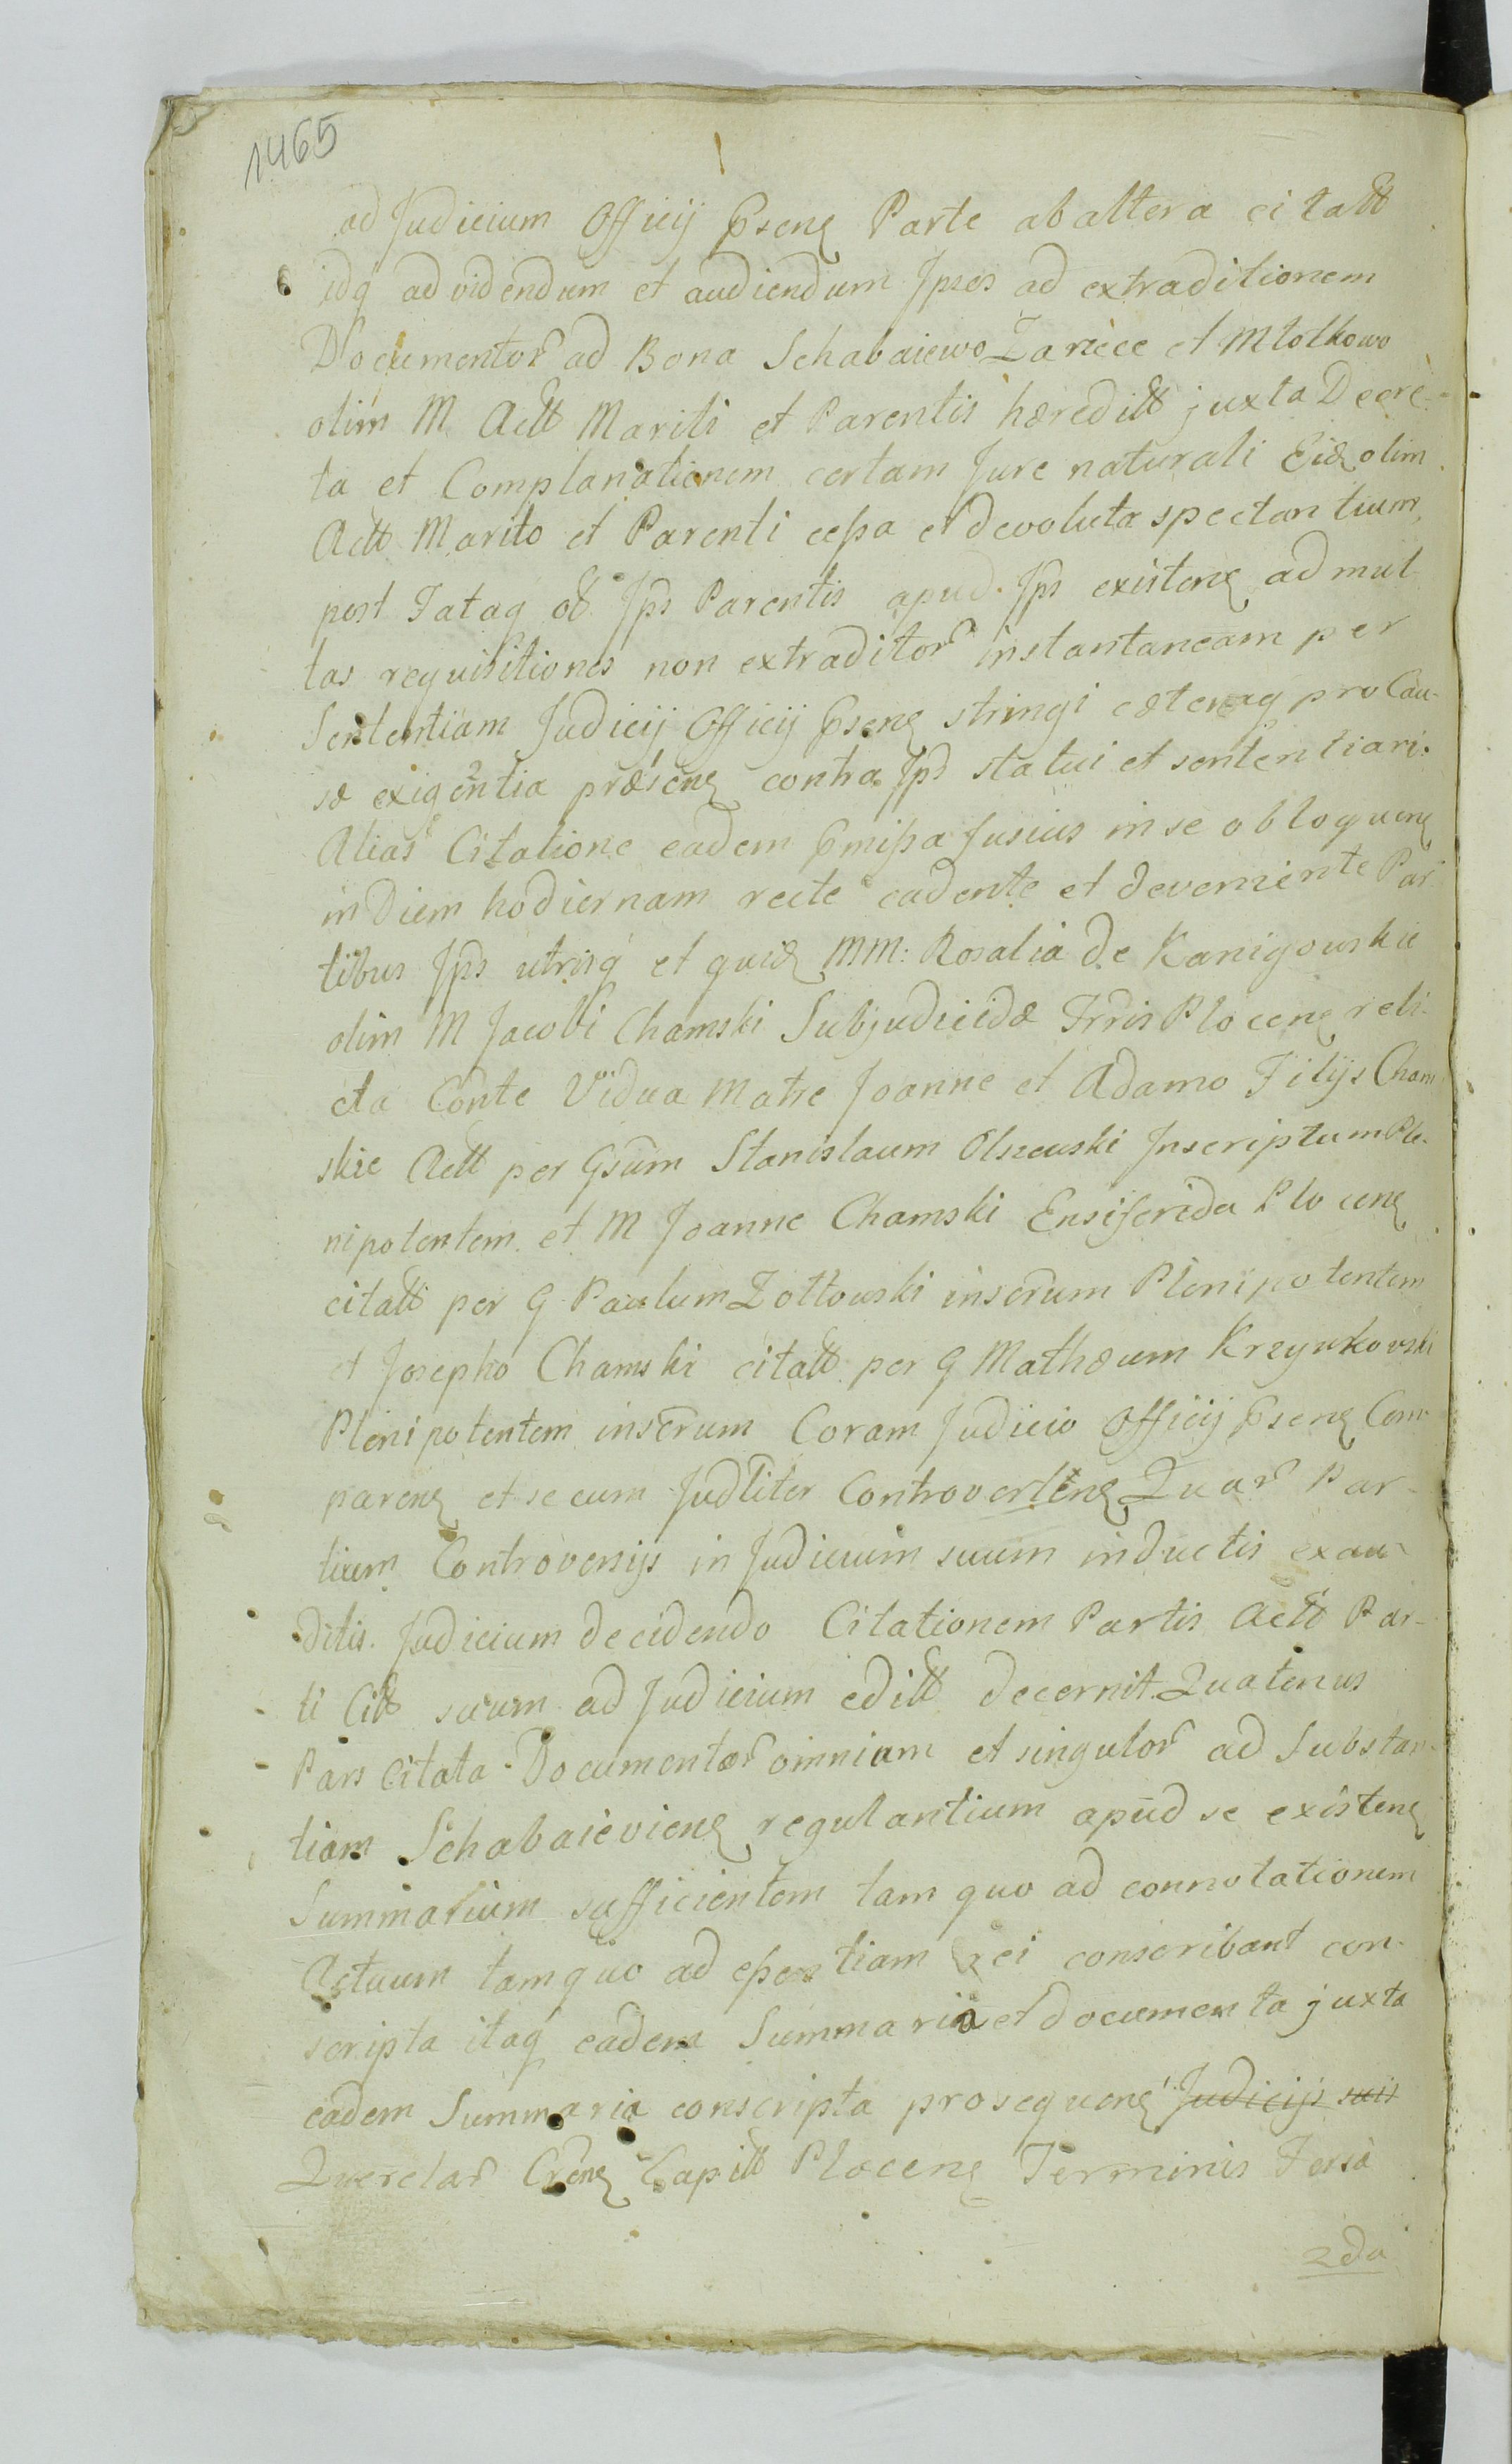 1465
ad Judicium Officij Pseng Parte ab altera citatt
idq ad videndum et audiendum Jpsos ad extraditionem
Documentor ad Bona Schabaiewo Zarzece et Mlotkowo
olim M Actt Mariti et Parentis hæreditt juxta Decre-
ta et Complanationem certam Jure naturali Eid olim
Actt Marito et Parenti ceßa et devoluta spectantium,
post Fataq ob Jps Parentis apud Jps existeng ad mul-
tas requisitiones non extraditor instantaneam per
Sententiam Judicij Officij Pseng stringi cæteraq pro Cau-
sæ exigentia præseng contra Jps statui et sententiari.
Alias Citatione eadem Pmißa fusius in se obloqueng
in Diem hodiernam recte cadente et deveniente Par-
tibus Jps utrisq et quid MM: Rosalia de Kanigowskie
olim M Jacobi Chamski Subjudicidæ Trris Ploceng reli-
cta Conte Vidua Matre Joanne et Adamo Filijs Cham
skie Actt per Gsum Stanislaum Olszewski Jnscriptum Ple-
nipotentem et M Joanne Chamski Ensiferida Ploceng
citatt per G Paulum Zottowski inscrum Plenipotentem
et Josepho Chamski citatt per G Mathæum Krzywkowski
Plenipotentem inscrum Coram Judicio Officij Pseng Com-
pareng et secum Judliter Controverteng Quar Par-
tium Controversijs in Judicium suum inductis exau-
ditis. Judicium decidendo Citationem Partis Actt Par-
ti Citt suum ad Judicium editt decernit Quatenus
Pars Citata Documentor omnium et singulor ad Substan-
tiam Schabaievieng regulantium apud se existeng
Summarium sufficientem tam quo ad connotationem
Actuum tam quo ad eßentiam rei conscribant con-
scripta itaq eadem Summaria et documenta juxta
eadem Summaria conscripta prosequeng Judicijs suis
Querelar Creng Capitt Ploceng Terminis Feria
2da